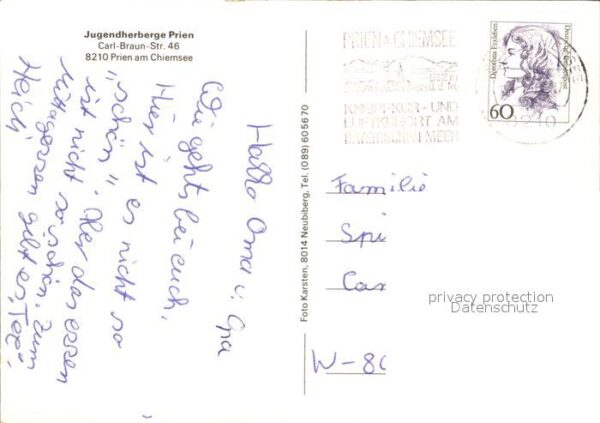 Jugendherberge Prien
Carl-Braun-Str. 46
8210 Prien am Chiemsee
Hallo Oma u. Opa
Wie gehts bei euch.
Hier ist es nicht so
"schön". Aber das essen
ist nicht so schön. Zum
Mittagessen gibt es "Tee".
Heidi
Foto Karsten, 8014 Neubiberg, Tel. (089) 605670
PRIEN A. CHIEMSEE
KNEIPPKUR- UND
LUFTKURORT AM
BAYERISCHEN MEER
8210
Dorothea Erxleben
Deutsche Bundespost
60
Familie
Spi
Cas
W-80
privacy protection
Datenschutz